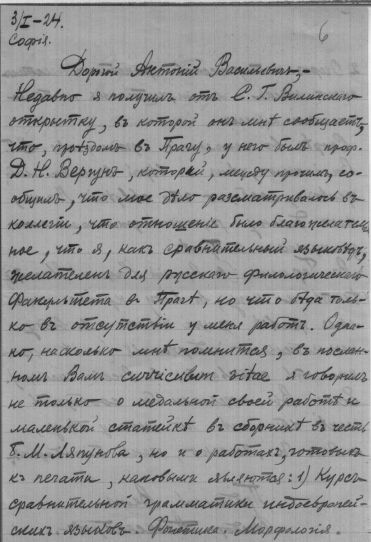 3/I-24.
Софія.
6
Дорогой Антоній Васильевичъ,-
Недавно я получилъ отъ С. Г. Вилинскаго
открытку, въ которой онъ мнѣ сообщаетъ,
что, проѣздомъ въ Прагу, у него былъ проф.
Д. Н. Вергунъ, который, между прочимъ, со-
общилъ, что мое дѣло разсматривалось въ
коллегіи, что отношеніе было благожелатель-
ное, что я, какъ сравнительный языковѣдъ,
желателенъ для русскаго филологическаго
факультета въ Прагѣ, но что бѣда толь-
ко въ отсутствіи у меня работъ. Одна-
ко, насколько мнѣ помнится, въ послан-
номъ Вамъ curriculum vitae я говорилъ
не только о медальной своей работѣ и
маленькой статейкѣ въ сборникѣ въ честь
Б. М. Ляпунова, но и о работахъ, готовыхъ
къ печати, каковыми являются: 1) Курсъ
сравнительной грамматики индоевропей-
скихъ языковъ. Фонетика. Морфологія.